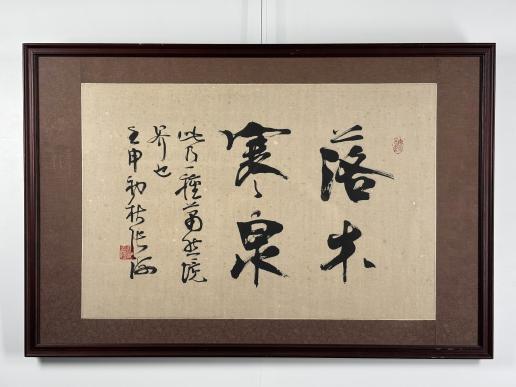 落木
寒泉
此乃一種蕭然境
界也
壬申初秋張海